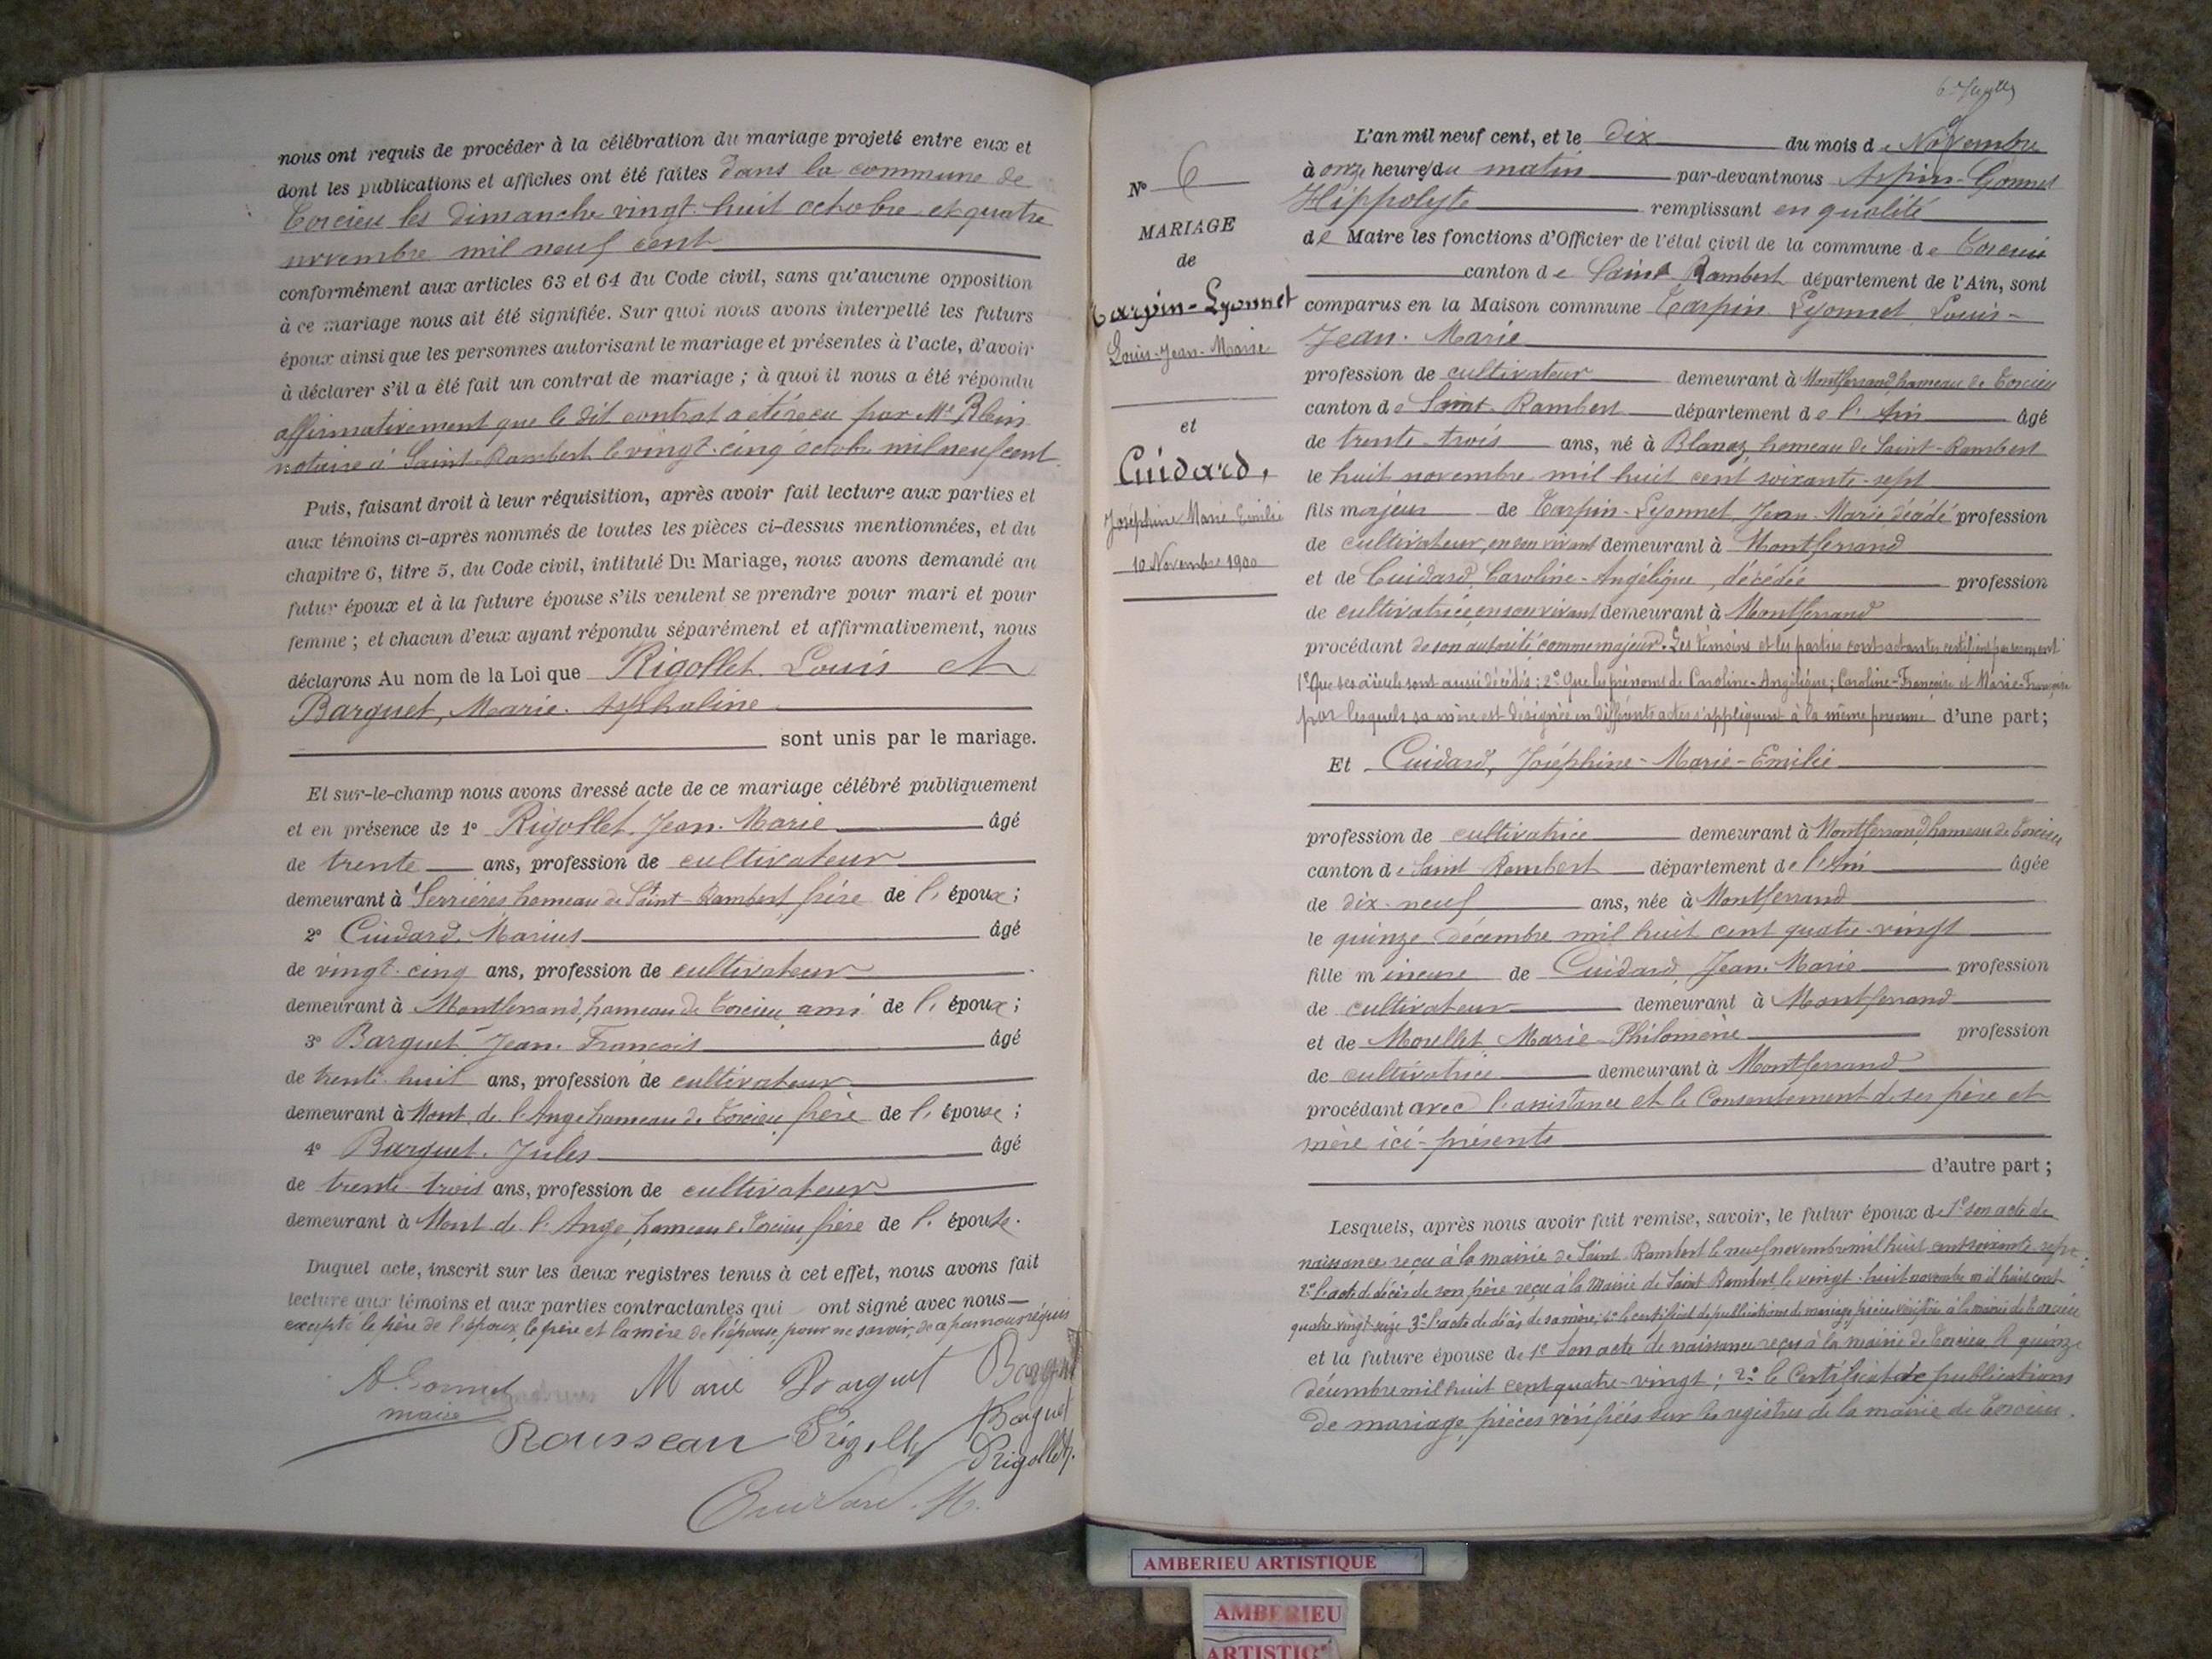 nous ont requis de procéder à la célébration du mariage projeté entre eux et
dont les publications et affiches ont été faites dans la commune de
Torcieu les dimanche vingt-huit octobre et quatre
novembre mil neuf cent
conformément aux articles 63 et 64 du Code civil, sans qu'aucune opposition
à ce mariage nous ait été signifiée. Sur quoi nous avons interpellé les futurs
époux ainsi que les personnes autorisant le mariage et présentes à l'acte, d'avoir
à déclarer s'il a été fait un contrat de mariage ; à quoi il nous a été répondu
affirmativement que le dit contrat a été reçu par Me Blein
notaire à Saint-Rambert le vingt-cinq octobre mil neuf cent
Puis, faisant droit à leur réquisition, après avoir fait lecture aux parties et
aux témoins ci-après nommés de toutes les pièces ci-dessus mentionnées, et du
chapitre 6, titre 5, du Code civil, intitulé Du Mariage, nous avons demandé au
futur époux et à la future épouse s'ils veulent se prendre pour mari et pour
femme ; et chacun d'eux ayant répondu séparément et affirmativement, nous
déclarons Au nom de la Loi que Rigollet Louis et
Barquet, Marie
sont unis par le mariage.
Et sur-le-champ nous avons dressé acte de ce mariage célébré publiquement
et en présence de 1° Rigollet Jean-Marie âgé
de trente ans, profession de cultivateur
demeurant à Serrières hameau de Saint-Rambert frère de l' époux ;
2° Cuidard, Marius âgé
de vingt-cinq ans, profession de cultivateur
demeurant à Montferrand, hameau de Torcieu ami de l' époux ;
3° Barquet Jean-François âgé
de trente-huit ans, profession de cultivateur
demeurant à Mont de l'Ange hameau de Torcieu frère de l' épouse ;
4° Barquet, Jules âgé
de trente-trois ans, profession de cultivateur
demeurant à Mont de l'Ange, hameau de Torcieu, frère de l' épouse.
Duquel acte, inscrit sur les deux registres tenus à cet effet, nous avons fait
lecture aux témoins et aux parties contractantes qui ont signé avec nous
excepté le père de l'époux, le père et la mère de l'épouse pour ne savoir, de ce par nous requis
A. Gonnet Marie Barquet Barquet
maire Barquet
Rousseau Rigollet Rigollet
Cuidard M.
L'an mil neuf cent, et le dix du mois de Novembre
N° 6
à onze heures du matin par-devant nous Arpin-Gonnet
Hippolyte remplissant en qualité
MARIAGE
de Maire les fonctions d'Officier de l'état civil de la commune de Torcieu
de
canton de Saint Rambert département de l'Ain, sont
Tarpin-Lyonnet
comparus en la Maison commune Tarpin Lyonnet Louis-
Louis-Jean-Marie
Jean-Marie
profession de cultivateur demeurant à Montferrand hameau de Torcieu
canton de Saint-Rambert département de l'Ain âgé
et
de trente-trois ans, né à Blanaz, hameau de Saint-Rambert
Cuidard,
le huit novembre mil huit cent soixante-sept
Joséphine Marie Emilie
fils majeur de Tarpin-Lyonnet, Jean-Marie, décédé profession
de cultivateur, en son vivant demeurant à Montferrand
10 Novembre 1900
et de Cuidard, Caroline-Angélique, décédée profession
de cultivatrice, en son vivant demeurant à Montferrand
procédant de son autorité comme majeur. Les témoins et les parties contractantes certifient par serment
1° Que ses aïeuls sont aussi décédés ; 2° Que les prénoms de Caroline-Angélique ; Caroline-Françoise et Marie-Françoise
par lesquels sa mère est désignée en différents actes s'appliquent à la même personne d'une part ;
Et Cuidard, Joséphine-Marie-Emilie
profession de cultivatrice demeurant à Montferrand, hameau de Torcieu
canton de Saint Rambert département de l'Ain âgée
de dix-neuf ans, née à Montferrand
le quinze décembre mil huit cent quatre-vingt
fille mineure de Cuidard, Jean-Marie profession
de cultivateur demeurant à Montferrand
et de Morellet Marie-Philomène profession
de cultivatrice demeurant à Montferrand
procédant avec l'assistance et le consentement de ses père et
mère ici-présents
d'autre part ;
Lesquels, après nous avoir fait remise, savoir, le futur époux de 1° son acte de
naissance reçu à la mairie de Saint-Rambert le neuf novembre mil huit cent soixante-sept ;
2° l'acte de décès de son père reçu à la Mairie de Saint Rambert le vingt-huit novembre mil huit cent
quatre vingt-seize 3° l'acte de décès de sa mère ; 4° le certificat de publications de mariage, pièces vérifiées à la mairie de Torcieu
et la future épouse de 1° son acte de naissance reçu à la mairie de Torcieu le quinze
décembre mil huit cent quatre-vingt ; 2° le certificat de publications
de mariage, pièces vérifiées sur les registres de la mairie de Torcieu.
AMBERIEU ARTISTIQUE
AMBERIEU